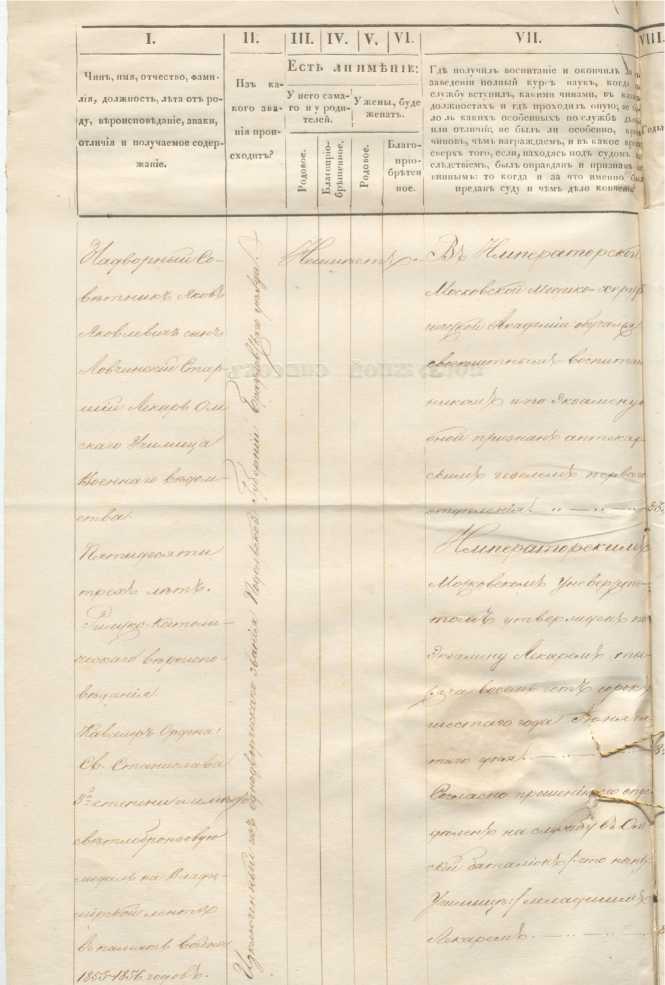 I.
II.
III.
IV.
V.
VI.
VII.
VIII.
Чинъ, имя, отчество, фами-
лія, должность, лѣта отъ ро-
ду, вѣроисповѣданіе, знаки,
отличія и получаемое содер-
жаніе.
Изъ ка-
кого зва-
нія прои-
сходитъ?
Есть ли имѣніе:
У него сама-
го и у роди-
телей.
У жены, буде
женатъ.
Родовое.
Благопріо-
брѣтенное,
Родовое.
Благо-
пріо-
брѣтен
ное.
Гдѣ получилъ воспитаніе и окончилъ ли въ
заведеніи полный курсъ наукъ, когда
службу вступилъ, какими чинами, въ какихъ
должностяхъ и гдѣ проходилъ оную; не бы
ло ль какихъ особенныхъ по службѣ дѣяній
или отличій; не былъ ли особенно, кромѣ
чиновъ, чѣмъ награждаемъ, и въ какое время
сверхъ того, если, находясь подъ судомъ
слѣдствіемъ, былъ оправданъ и признанъ
виннымъ: то когда и за что именно былъ
преданъ суду и чѣмъ дѣло кончено
Годы
Надворный Со-
вѣтникъ Яковъ
Яковлевичъ сынъ
Ловчинскій Стар-
шій Лекарь Ом-
скаго Училища
Военнаго вѣдом-
ства.
Пятидесяти
трехъ лѣтъ.
Римско-Католи-
ческаго вѣроиспо-
вѣданія
Кавалеръ Ордена:
Св. Станислава
3й степени и имѣетъ
свѣтлобронзовую
медаль на Влади-
мірской лентѣ
въ память войны
1853-1856 годовъ.
изъ однодворческаго званія Подольской Губерніи уѣзда.
Неимѣетъ
Въ Императорской
Московской Медико-хирур
гической Академіи обучался
воспитан
никомъ и по Экзамену
признанъ аптекар
скимъ перваго
отдѣленія
Императорскимъ
Московскомъ Универзите
томъ утвержденъ по
Экзамену Лекаремъ ты-
сяча восемь сотъ сорокъ
шестаго года Іюня пя
таго дня
Согласно прошенію опре
дѣленъ на службу въ Ом
скій баталіонъ /что нынѣ
Училище/ младшимъ
Лекаремъ.